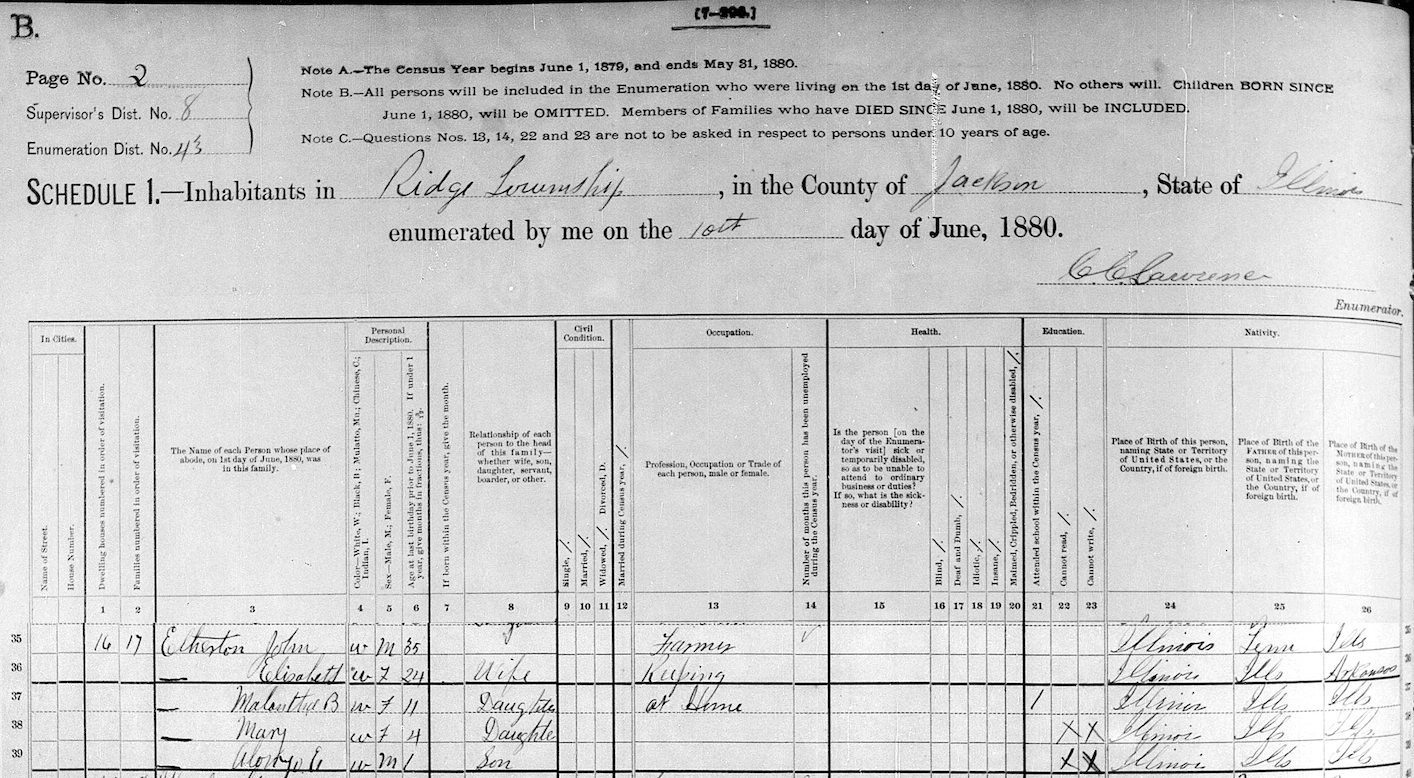 B.
[7-296.]
Page No. 2
Supervisor's Dist. No. 8
Enumeration Dist. No. 43
Note A.—The Census Year begins June 1, 1879, and ends May 31, 1880.
Note B.—All persons will be included in the Enumeration who were living on the 1st day of June, 1880. No others will. Children BORN SINCE
June 1, 1880, will be OMITTED. Members of Families who have DIED SINCE June 1, 1880, will be INCLUDED.
Note C.—Questions Nos. 13, 14, 22 and 23 are not to be asked in respect to persons under 10 years of age.
SCHEDULE 1.—Inhabitants in Ridge Township, in the County of Jackson, State of Illinois
enumerated by me on the 10th day of June, 1880.
C. C. Lawrence
Enumerator.
In Cities.
Name of Street.
House Number.
Dwelling houses numbered in order of visitation.
Families numbered in order of visitation.
The Name of each Person whose place of
abode, on 1st day of June, 1880, was
in this family.
Personal
Description.
Color—White, W.; Black, B.; Mulatto, Mu.; Chinese, C.;
Indian, I.
Sex—Male, M.; Female, F.
Age at last birthday prior to June 1, 1880. If under 1
year, give months in fractions, thus:
If born within the Census year, give the month.
Relationship of each
person to the head
of this family—
whether wife, son,
daughter, servant,
boarder, or other.
Civil
Condition.
Single, /.
Married, /.
Widowed, /. Divorced, D.
Married during Census year, /.
Occupation.
Profession, Occupation or Trade of
each person, male or female.
Number of months this person has been unemployed
during the Census year.
Health.
Is the person [on the
day of the Enumera-
tor's visit] sick or
temporarily disabled,
so as to be unable to
attend to ordinary
business or duties?
If so, what is the sick-
ness or disability?
Blind, /.
Deaf and Dumb, /.
Idiotic, /.
Insane, /.
Maimed, Crippled, Bedridden, or otherwise disabled, /.
Education.
Attended school within the Census year, /.
Cannot read, /.
Cannot write, /.
Nativity.
Place of Birth of this person,
naming State or Territory
of United States, or the
Country, if of foreign birth.
Place of Birth of the
FATHER of this per-
son, naming the
State or Territory
of United States, or
the Country, if of
foreign birth.
Place of Birth of the
MOTHER of this per-
son, naming the
State or Territory
of United States, or
the Country, if of
foreign birth.
1 2 3 4 5 6 7 8 9 10 11 12 13 14 15 16 17 18 19 20 21 22 23 24 25 26
35 16 17 Etherton John W M 35 Farmer Illinois Tenn Ills
36 — Elisabeth W F 24 Wife Keeping Illinois Ills Arkansas
37 — B W F 11 Daughter at Home / Illinois Ills Ills
38 — Mary W F 4 Daughter X X Illinois Ills Ills
39 — W M 1 Son X X Illinois Ills Ills